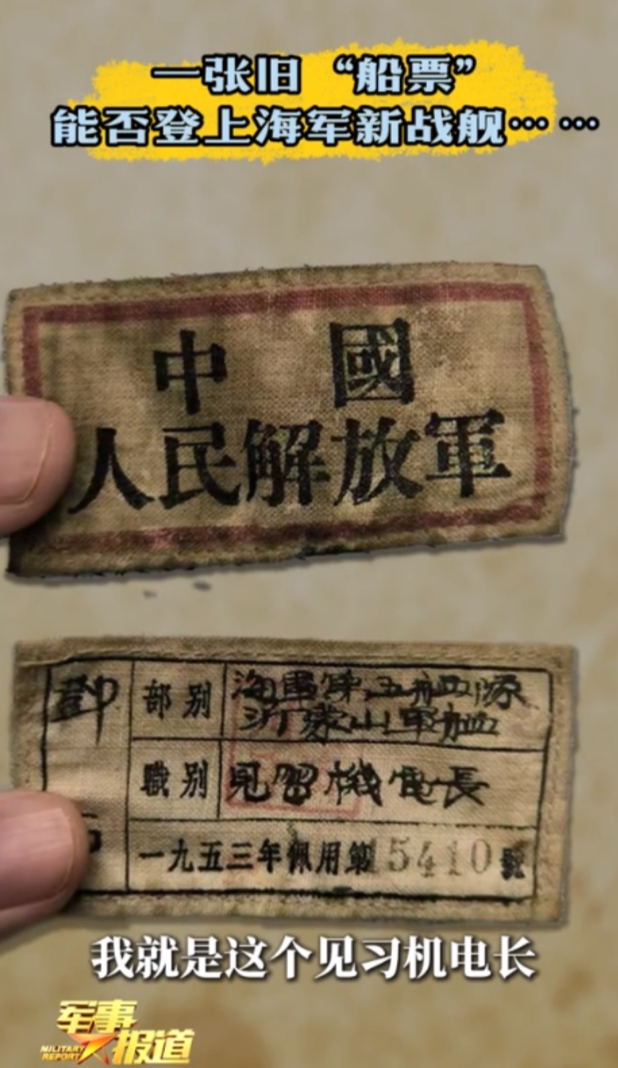 一张旧“船票”
能否登上海军新战舰……
中國
人民解放軍
鄧
部别 海軍第五舰隊
沂蒙山軍舰
職别 見習機電長
一九五三年佩用第15410號
我就是这个见习机电长
军事报道
MILITARY REPORT